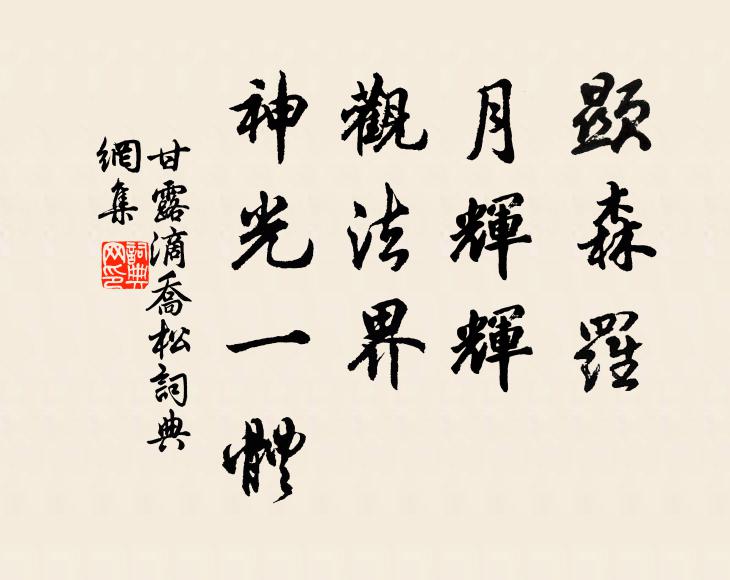 顯森羅
月輝輝
觀法界
神光一體
甘露滴喬松詞典
網集
詞典
网印